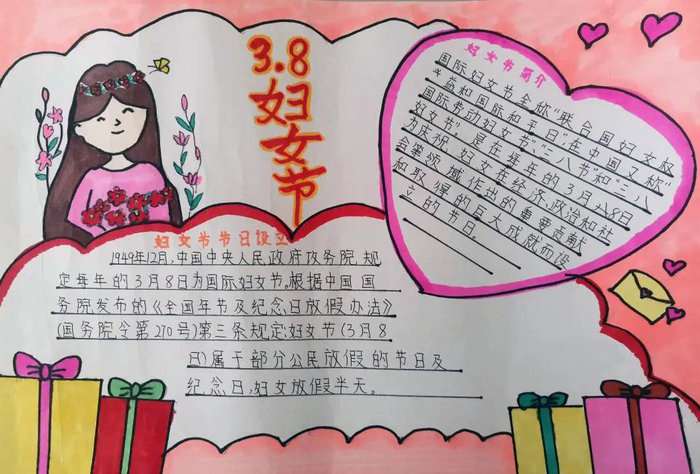 3.8
妇女节
妇女节简介
国际妇女节全称"联合国妇女权
益和国际和平日",在中国又称"
国际劳动妇女节"、"三八节"和"三八
妇女节"。是在每年的3月8日
为庆祝妇女在经济、政治和社
会等领域作出的重要贡献
和取得的巨大成就而设
立的节日。
妇女节节日设立
1949年12月,中国中央人民政府政务院,规
定每年的3月8日为国际妇女节,根据中国国
务院发布的《全国年节及纪念日放假办法》
(国务院令第270号)第三条规定:妇女节(3月8
日)属于部分公民放假的节日及
纪念日,妇女放假半天。